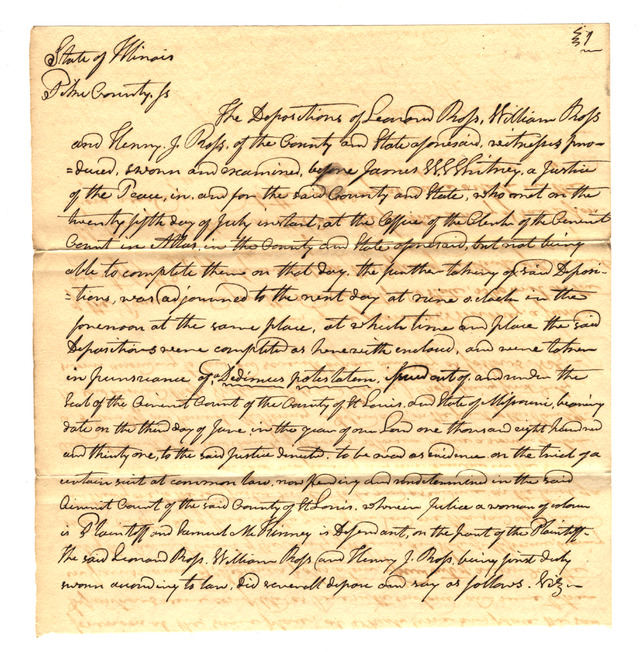 1
State of Illinois
Pike County, ss
The Depositions of Leonard Ross, William Ross
and Henry. J. Ross, of the County and State aforesaid, witnesses pro-
=duced, sworn and examined, before James W. Whitney, a Justice
of the Peace, in, and for the said County and State, who met on the
twenty fifth day of July instant, at the Office of the Clerk of the Circuit
Court in Atlas, in the County and State aforesaid, but not being
able to complete them on that day, the further taking of said Deposi-
=tions, was adjourned to the next day at nine oclock in the
forenoon at the same place, at which time and place the said
Depositions were completed as herewith enclosed, and were taken
in pursuance of a Dedimus potestatem, issued out of, and under the
Seal of the Circuit Court of the County of St Louis, and State of Missouri, bearing
date on the third day of June, in the year of our Lord one thousand eight hundred
and thirty one, to the said Justice directed, to be read as evidence on the trial of a
certain suit at common law, now pending and undetermined in the said
Circuit Court of the said County of St Louis, wherein Julia a woman of colour
is Plaintiff and Samuel McKinney is Defendant, on the part of the Plaintiff.
The said Leonard Ross, William Ross and Henry J. Ross, being first duly
sworn according to law, did severally depose and say as follows. Viz—